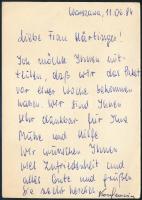 Warszawa, 11.06.84
Liebe Frau Härtinger!
Ich möchte Ihnen mit-
teilen, daß wir das Paket
vor einer Woche bekommen
haben. Wir sind Ihnen
sehr dankbar für Ihre
Mühe und Hilfe.
Wir wünschen Ihnen
viel Zufriedenheit und
alles Gute und grüßen
Sie recht herzlich